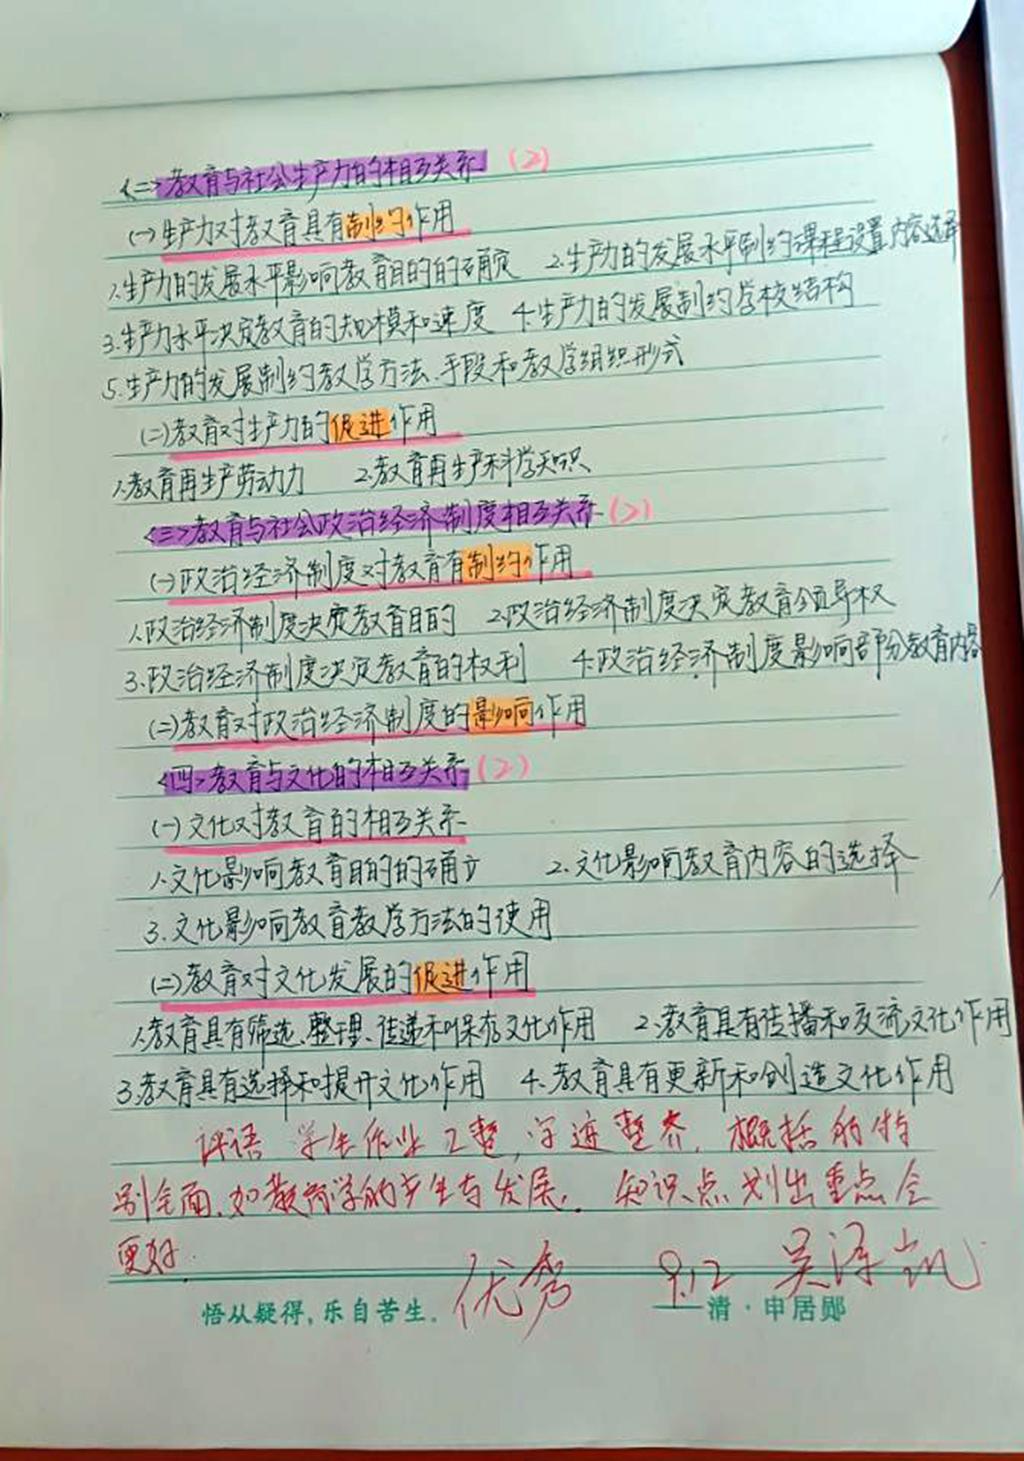 <二>教育与社会生产力的相互关系 (2)
(一)生产力对教育具有制约作用
1.生产力的发展水平影响教育目的的确定 2.生产力的发展水平制约课程设置内容选择
3.生产力水平决定教育的规模和速度 4.生产力的发展制约学校结构
5.生产力的发展制约教学方法、手段和教学组织形式
(二)教育对生产力的促进作用
1.教育再生产劳动力 2.教育再生产科学知识
<三>教育与社会政治经济制度相互关系 (2)
(一)政治经济制度对教育有制约作用
1.政治经济制度决定教育目的 2.政治经济制度决定教育领导权
3.政治经济制度决定教育的权利 4.政治经济制度影响部分教育内容
(二)教育对政治经济制度的影响作用
<四>教育与文化的相互关系 (2)
(一)文化对教育的相互关系
1.文化影响教育目的的确立 2.文化影响教育内容的选择
3.文化影响教育教学方法的使用
(二)教育对文化发展的促进作用
1.教育具有筛选、整理、传递和保存文化作用 2.教育具有传播和交流文化作用
3.教育具有选择和提升文化作用 4.教育具有更新和创造文化作用
评语 学生作业工整,字迹整齐,概括的特
别全面,如教育学的产生与发展。知识点划出重点会
更好.
优秀 9.12 吴泽凯
悟从疑得,乐自苦生。 ——清·申居郧